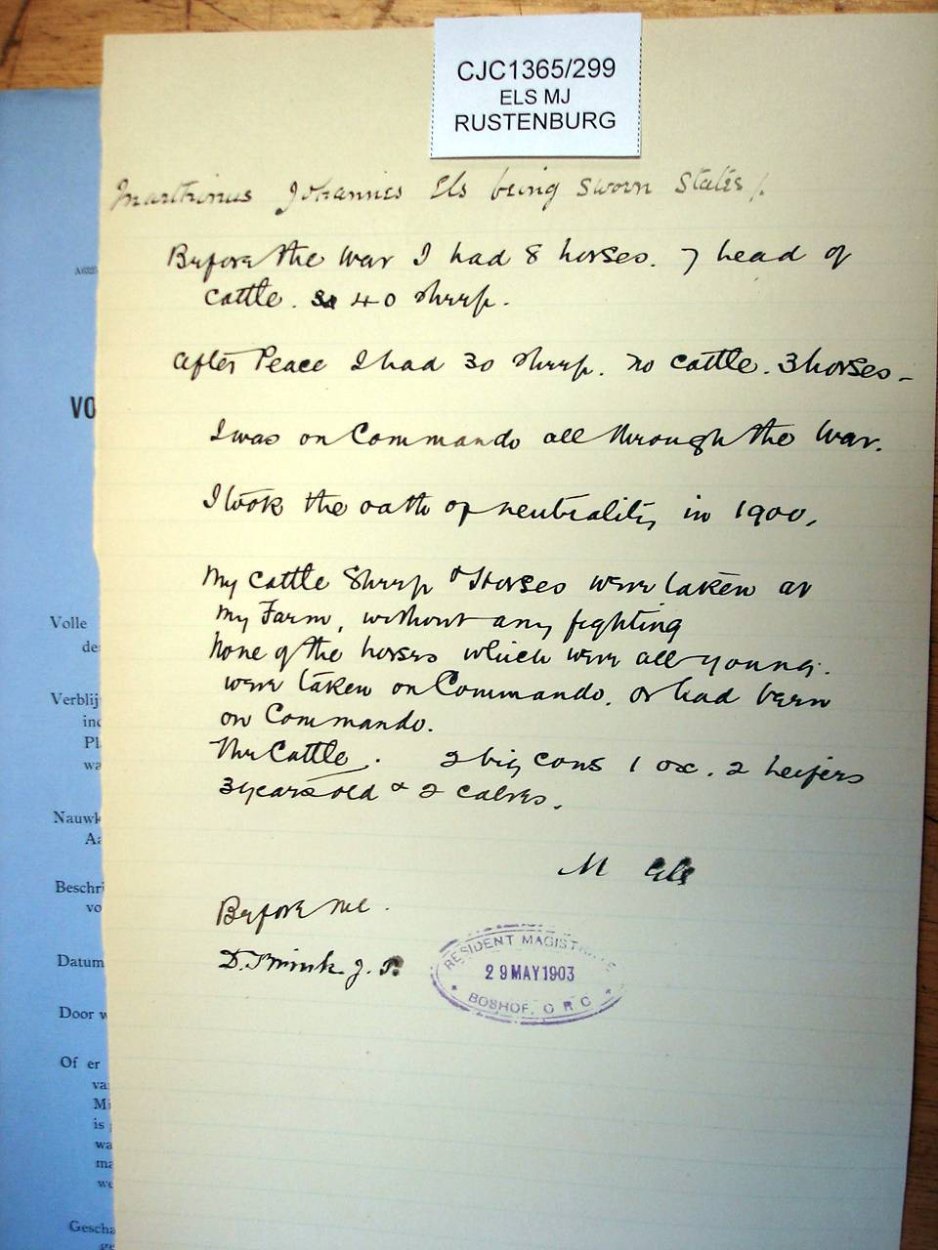 CJC1365/299
ELS MJ
RUSTENBURG
Marthinus Johannes Els being sworn States/.
Before the War I had 8 horses. 7 head of
cattle. 40 sheep.
After Peace I had 30 sheep. no cattle. 3 horses -
I was on Commando all through the War.
I took the oath of neutrality in 1900.
My cattle Sheep & Horses were taken at
my Farm, without any fighting
None of the horses which were all young.
were taken on Commando. or had been
on Commando.
The Cattle. 2 big cows 1 ox. 2 heifers
3 years old & 2 calves.
M Els
Before me.
D. J. P.
RESIDENT MAGISTRATE
29 MAY 1903
BOSHOF, O R C
VO
Volle
de
Verblij
in
Pl
wa
Nauwk
Aa
Beschri
vo
Datum
Door w
Of er
va
M
is
wa
ma
we
Gescha
ge